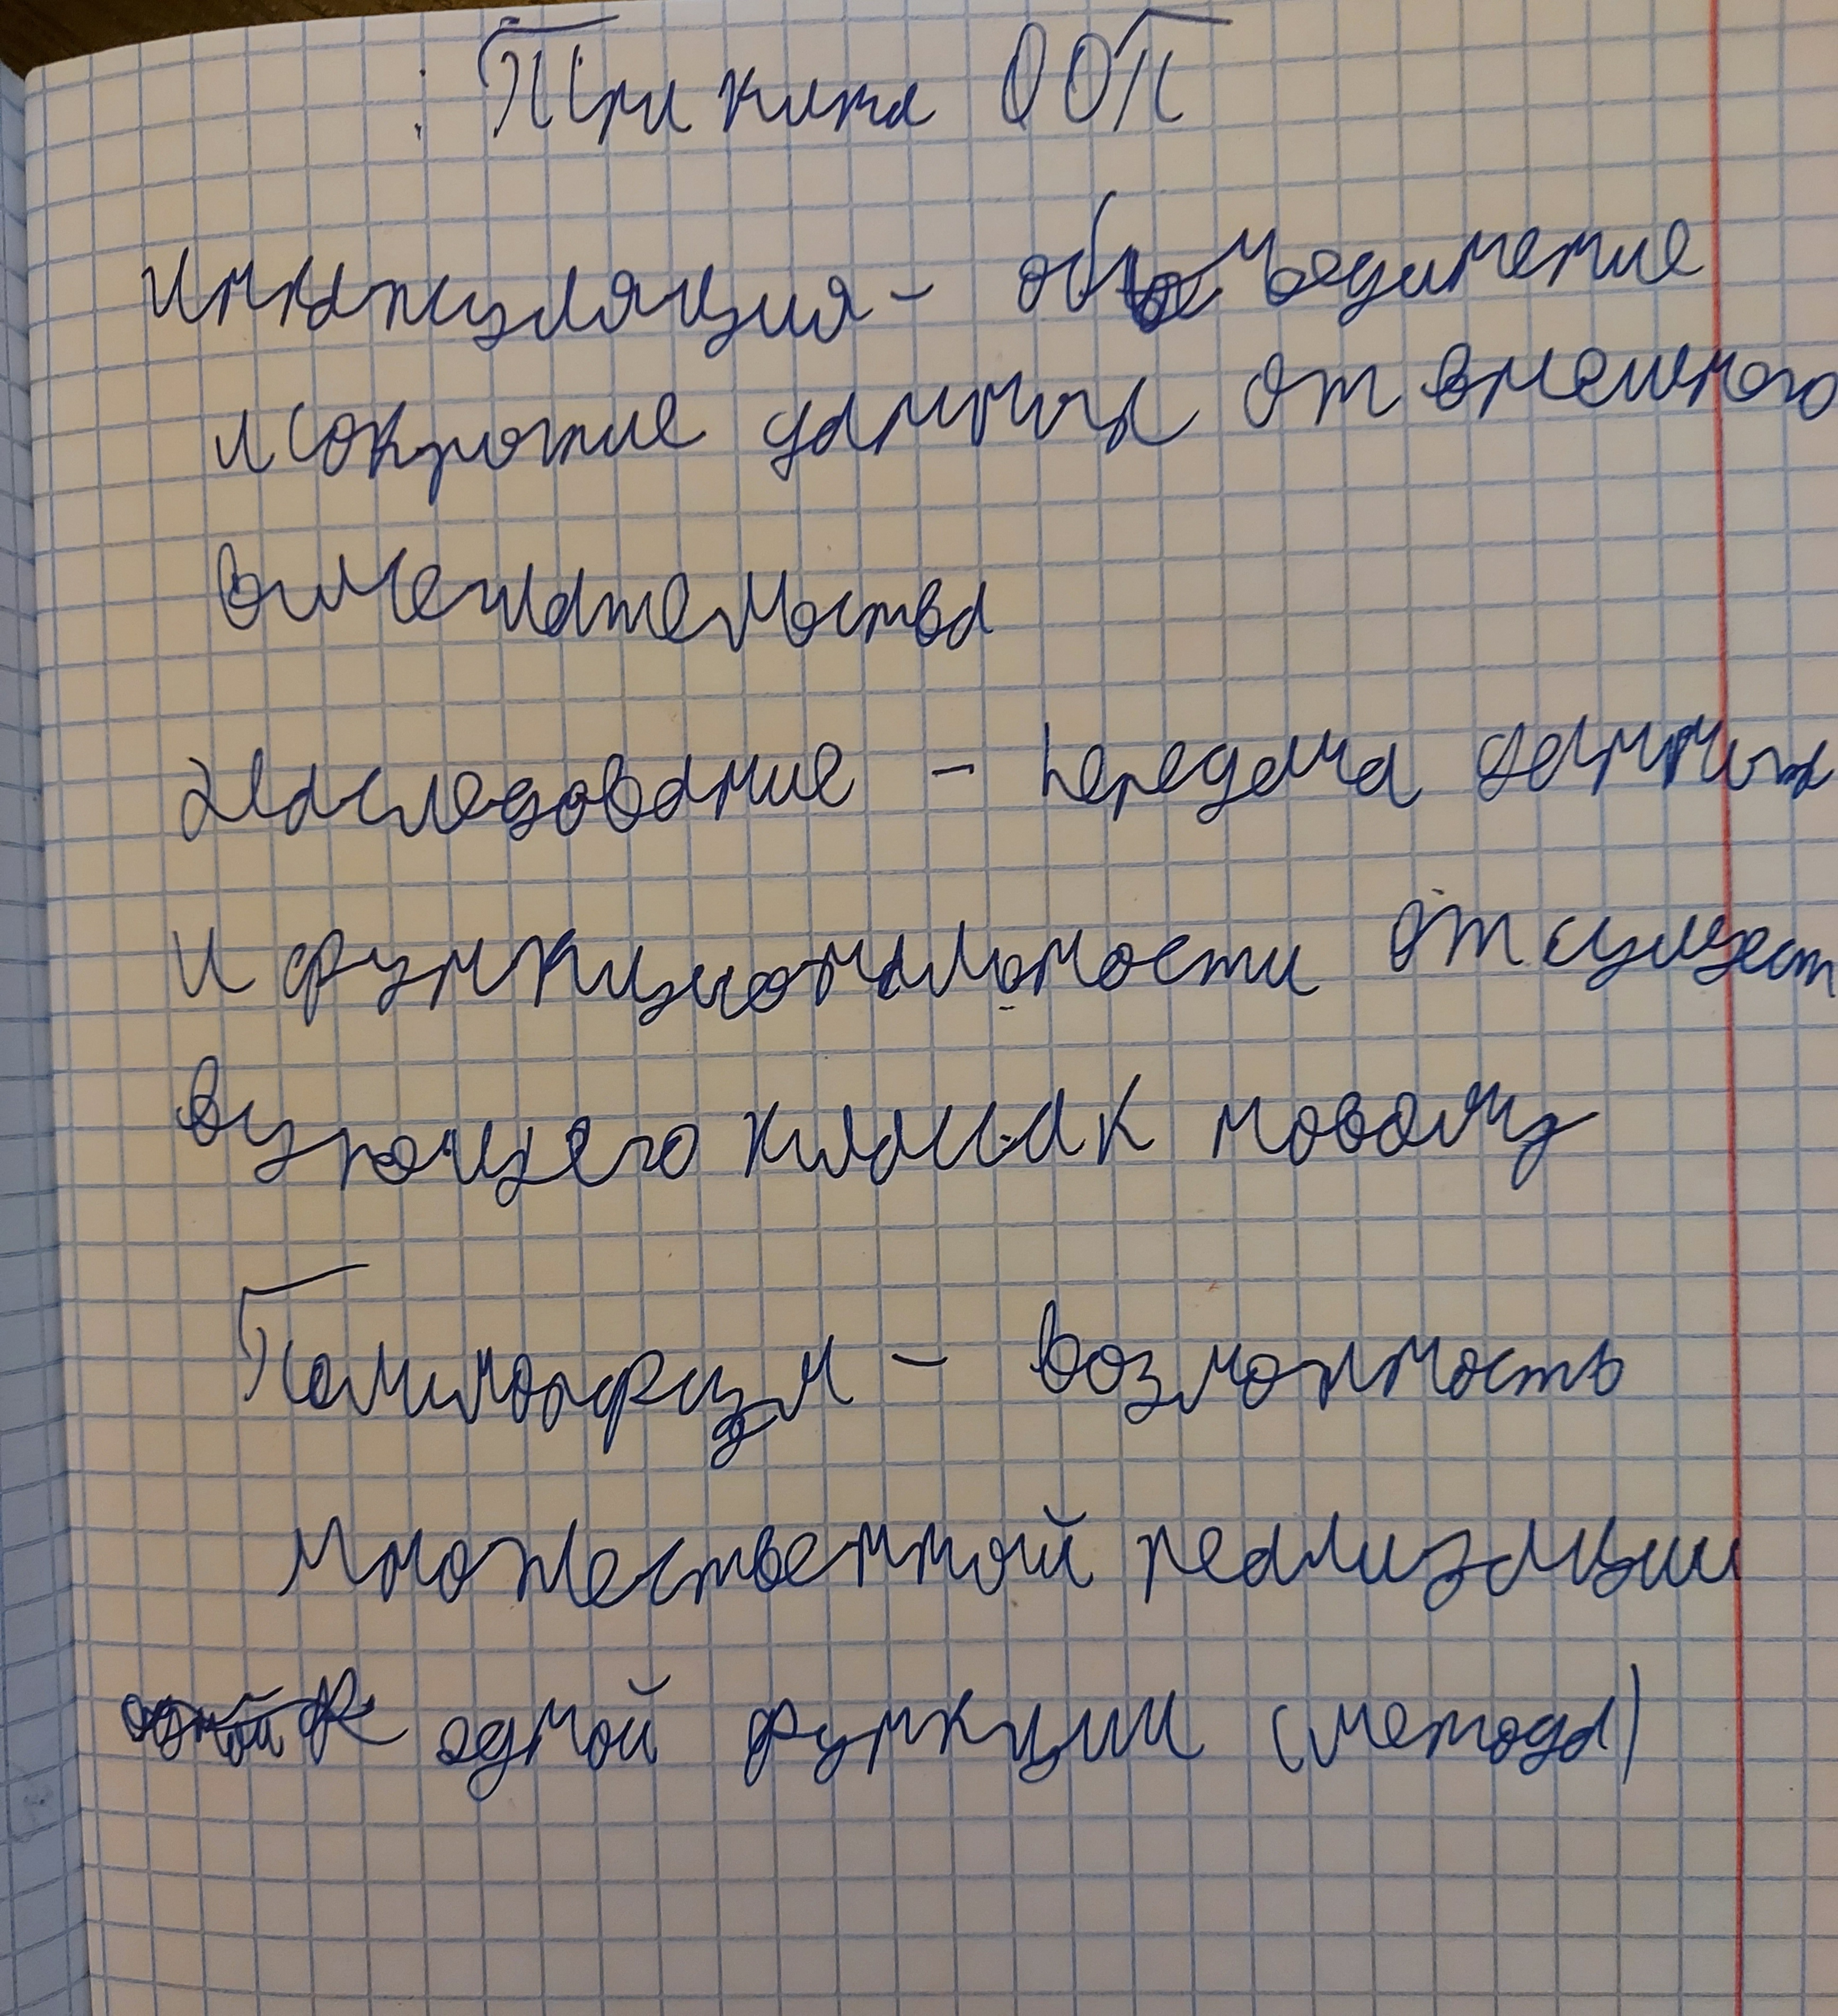 Три кита ООП
Инкапсуляция - объединение
и сокрытие данных от внешнего
вмешательства
Наследование - передача данных
и функциональности от сущест
вующего класса к новому
Полиморфизм - возможность
множественной реализации
одной функции (метода)